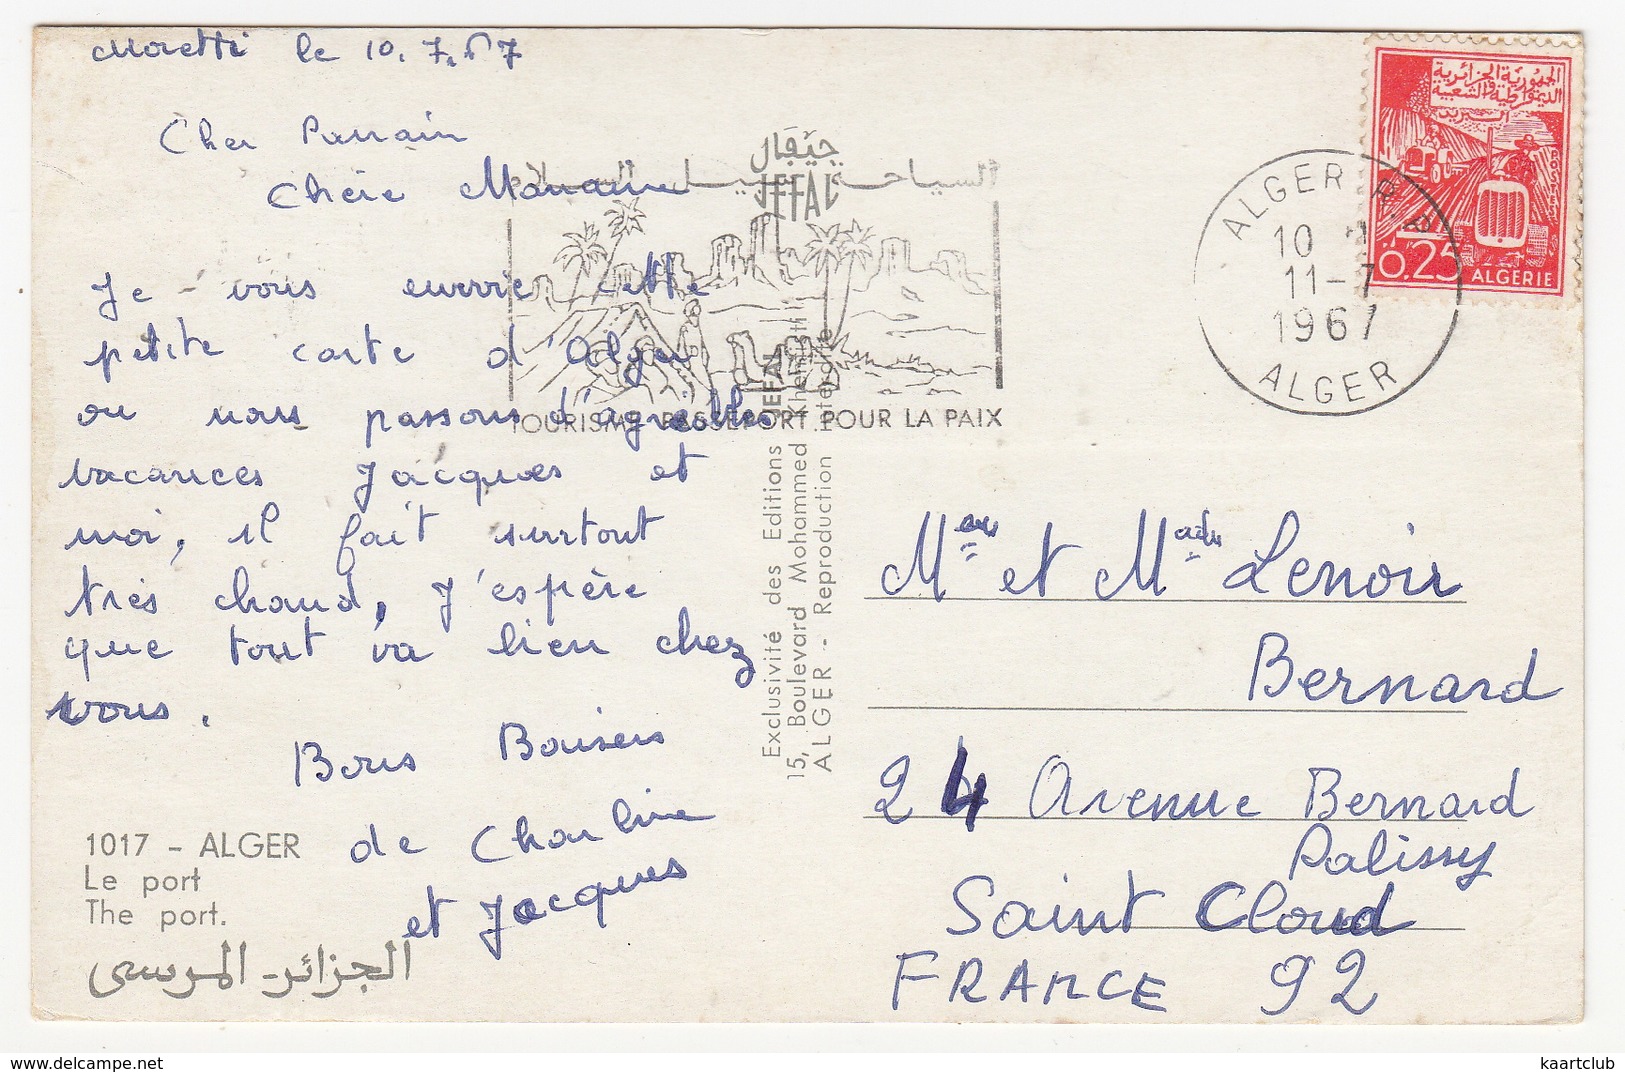 Moretti le 10.7.67
Cher Parrain
Chère Maname
Je vous envoie cette
petite carte d'Alger
ou nous passons d'agréables
vacances Jacques et
moi, il fait surtout
très chaud, J'espère
que tout va bien chez
vous.
Bons Baisers
de Charline
et Jacques
1017 - ALGER
Le port
The port.
الجزائر - المرسى
جيفال
JEFAL
السياحة سبيل السلام
TOURISME PASSEPORT POUR LA PAIX
Exclusivité des Editions JEFAL
15, Boulevard Mohammed Khemisti
ALGER - Reproduction interdite
ALGER R.P
10
11-7
1967
ALGER
الجمهورية الجزائرية
الديمقراطية الشعبية
البريد
0.25 ALGERIE
et Lenoir
Bernard
24 Avenue Bernard
Palissy
Saint Cloud
FRANCE 92
kaartclub
www.delcampe.net